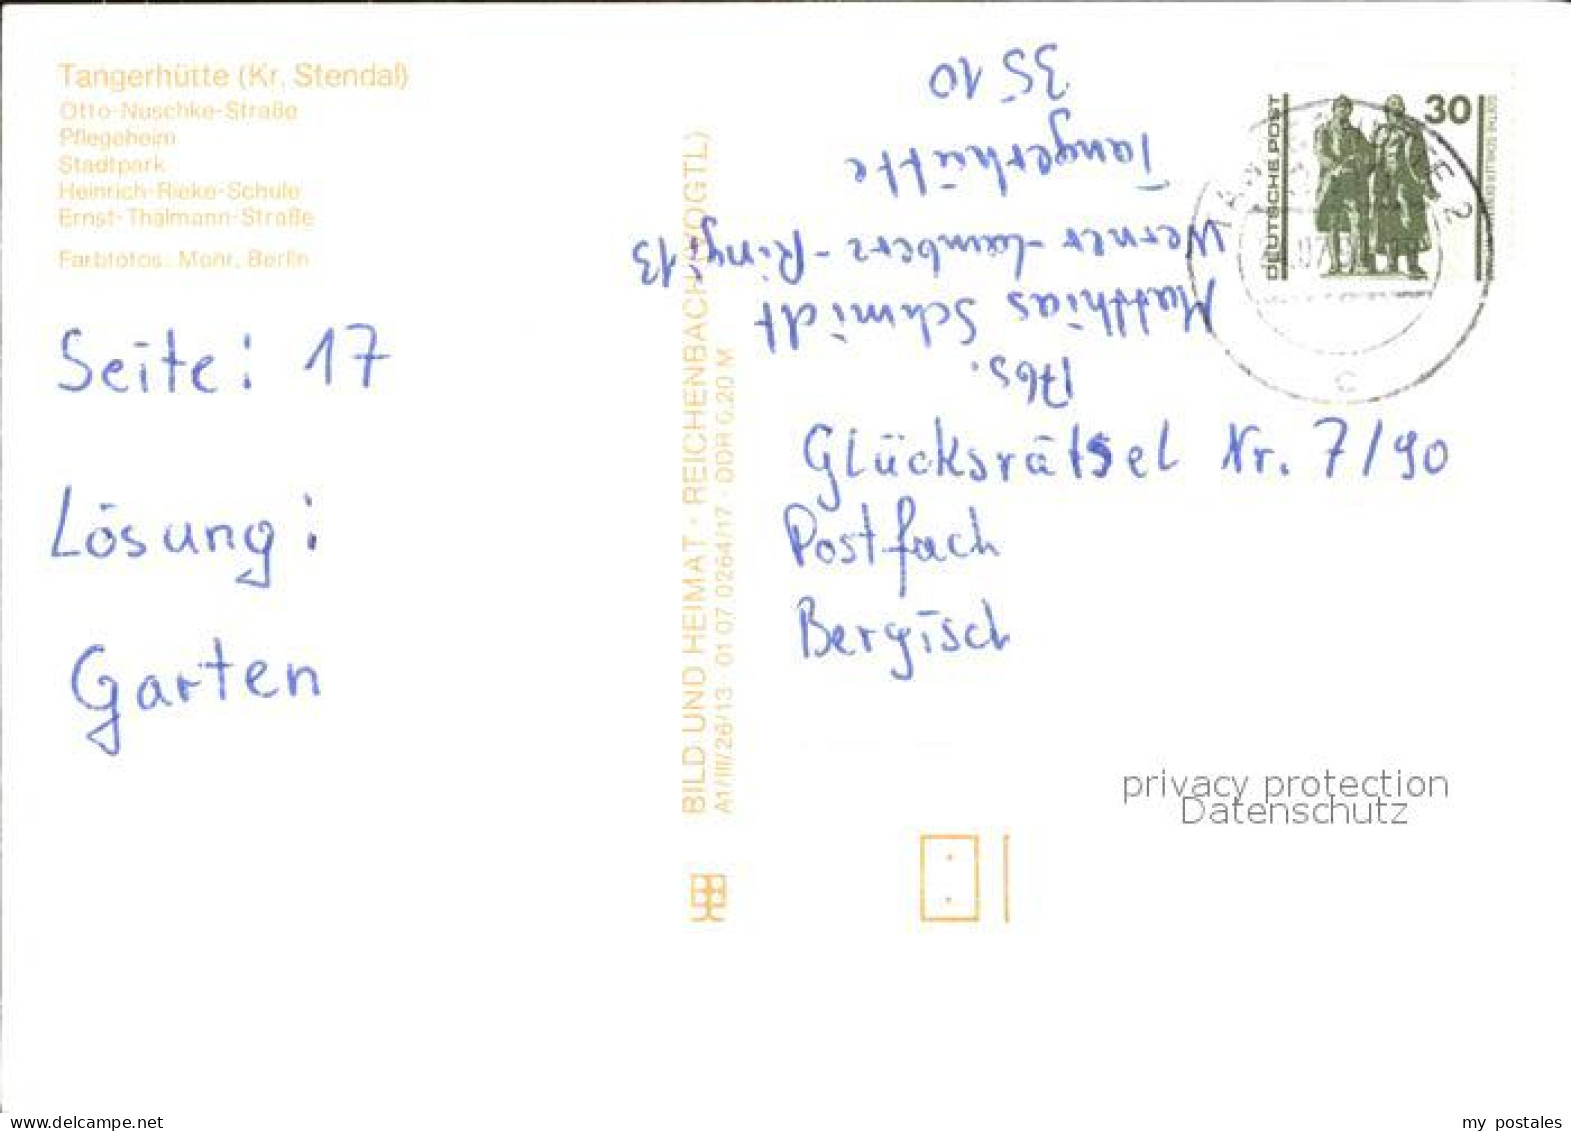 Tangerhütte (Kr. Stendal)
Otto-Nuschke-Straße
Pflegeheim
Stadtpark
Heinrich-Rieke-Schule
Ernst-Thälmann-Straße
Farbfotos: Mohr, Berlin
Seite: 17
Lösung:
Garten
BILD UND HEIMAT · REICHENBACH (VOGTL)
A1/III/26/13 · 01 07 0264/17 · DDR 0,20 M
Abs.
Matthias Schmidt
Werner-Lamberz-Ring 13
Tangerhütte
3510
DEUTSCHE POST
30
2
C
Glücksrätsel Nr. 7/90
Postfach
Bergisch
privacy protection
Datenschutz
www.delcampe.net
my_postales